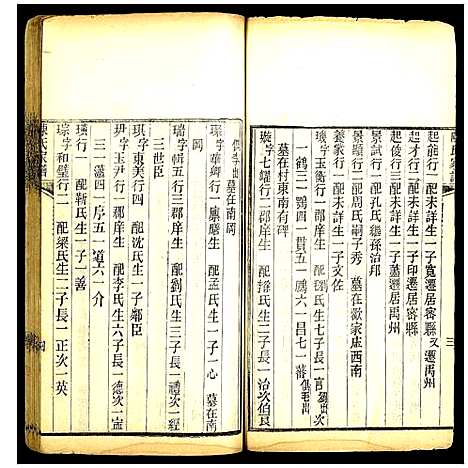 起能行一配未詳生一子寬遷居密縣又遷禹州
起才行二配未詳生一子印遷居密縣
起俊行三配未詳生一子蕙遷居禹州
景試行一配孔氏繼孫治邦
景行二配周氏嗣子秀 墓在歐家庄西南
養家行一配未詳生一子文佐
璇字玉衡行一郡庠生 配氏生七子長一言
一鶴三一鸚四一貫五一鵬六一昌七一蕃
墓在村東南有碑
璇字七耀行二郡庠生 配氏生二子長一治次伯艮
墓在南岡
字華卿行一廩生 配孟氏生一子一心 墓在南
岡
瑞字輯五行三郡庠生 配劉氏生三子長一禮次一經
三世臣
琪字東美行四 配沈氏生一子鄰臣
玥字玉尹行一郡庠生 配李氏生六子長一德次一
三一藻四一序五一道六一介
璞行一 配靳氏生一子一善
琮字和璧行二 配梁氏生二子長一正次一英
陳氏家譜